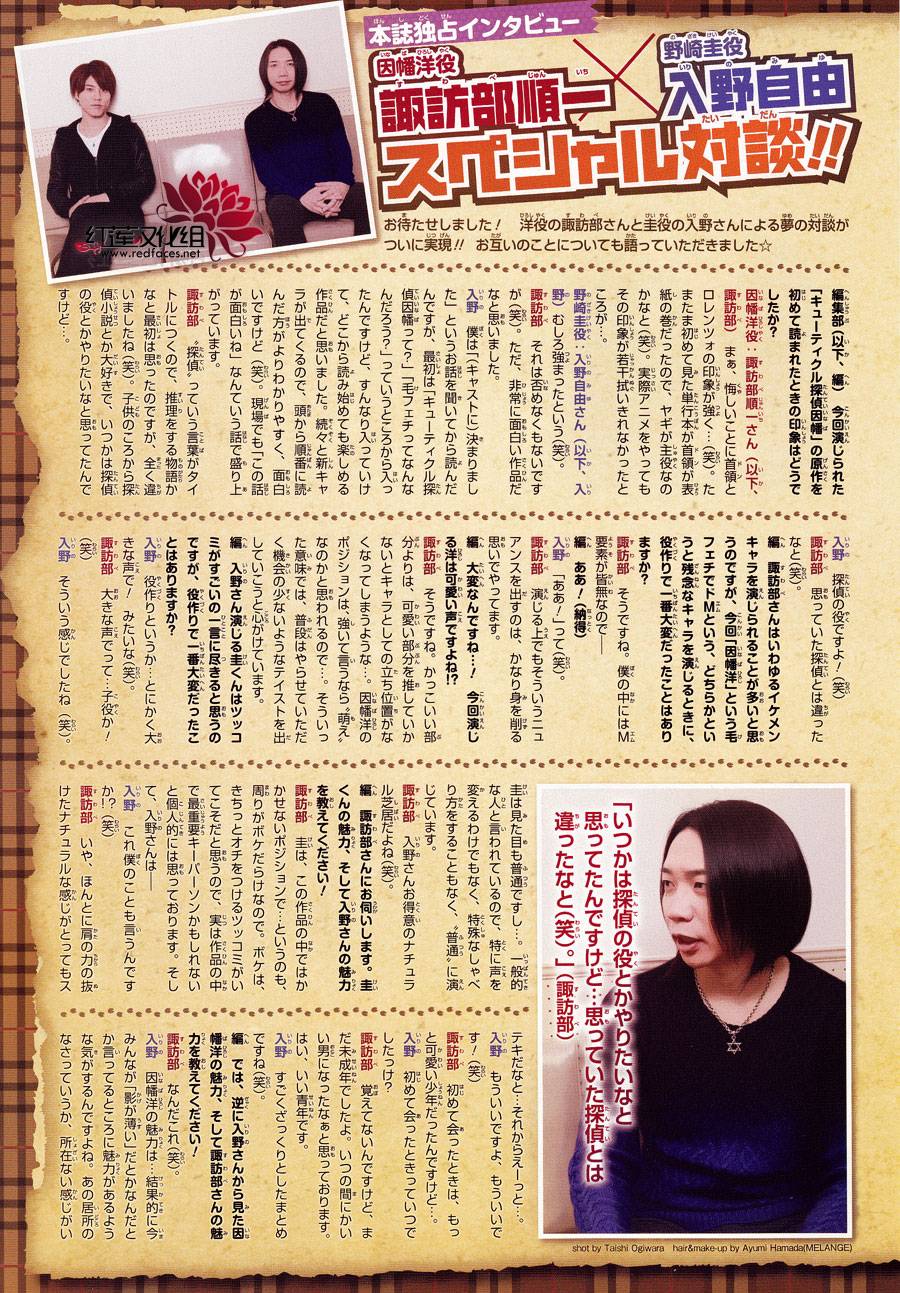 本誌独占インタビュー
因幡洋役
諏訪部順一
×
野崎圭役
入野自由
スペシャル対談!!
お待たせしました! 洋役の諏訪部さんと圭役の入野さんによる夢の対談が
ついに実現!! お互いのことについても語っていただきました☆
紅莲汉化组
www.redfaces.net
編集部(以下、編) 今回演じられた
「キューティクル探偵因幡」の原作を
初めて読まれたときの印象はどうで
したか?
因幡洋役:諏訪部順一さん(以下、
諏訪部) まぁ、悔しいことに首領と
ロレンツォの印象が強く…(笑)。た
またま初めて見た単行本が首領が表
紙の巻だったので、ヤギが主役なの
かなと(笑)。実際アニメをやっても
その印象が若干拭いきれなかったと
ころが。
野崎圭役:入野自由さん(以下、入
野) むしろ強まったという(笑)。
諏訪部 それは否めなくもないです
が(笑)。ただ、非常に面白い作品だ
なと思いました。
入野 僕は「(キャストに)決まりまし
た」というお話を聞いてから読んだ
んですが、最初は「キューティクル探
偵因幡って?」「毛フェチってなんな
んだろう?」っていうところから入っ
たんですけど、すんなり入っていけ
て、どこから読み始めても楽しめる
作品だと思いました。続々と新キャ
ラが出てくるので、頭から順番に読
んだ方がよりわかりやすく、面白
いですけど(笑)。現場でも「この話
が面白いね」なんていう話で盛り上
がっています。
諏訪部 〝探偵〟っていう言葉がタイ
トルにつくので、推理をする物語か
なと最初は思ったのですが、全く違
いましたね(笑)。子供のころから探
偵小説とか大好きで、いつかは探偵
の役とかやりたいなと思ってたんで
すけど…
入野 探偵の役ですよ!(笑)
諏訪部 思っていた探偵とは違った
なと(笑)。
編 諏訪部さんはいわゆるイケメン
キャラを演じられることが多いと思
うのですが、今回「因幡洋」という毛
フェチでドMという、どちらかとい
うと残念なキャラを演じるときに、
役作りで一番大変だったことはあり
ますか?
諏訪部 そうですね。僕の中にはM
要素が皆無なので──
編 ああ!(納得)
入野 「ああ!」って(笑)。
諏訪部 演じる上でもそういうニュ
アンスを出すのは、かなり身を削る
思いでやってます。
編 大変なんですね…! 今回演じ
る洋は可愛い声ですよね!?
諏訪部 そうですね。かっこいい部
分よりは、可愛い部分を推していか
ないとキャラとしての立ち位置がな
くなってしまうような…。因幡洋の
ポジションは、強いて言うなら〝萌え〟
なのかと思われるので…。そういっ
た意味では、普段はやらせていただ
く機会の少ないようなテイストを出
していこうと心がけています。
編 入野さん演じる圭くんはツッコ
ミがすごいの一言に尽きると思うの
ですが、役作りで一番大変だったこ
とはありますか?
入野 役作りというか…とにかく大
きな声で! みたいな(笑)。
諏訪部 大きな声でって…子役か!
(笑)
入野 そういう感じでしたね(笑)。
圭は見た目も普通ですし…。一般的
な人と言われているので、特に声を
変えるわけでもなく、特殊なしゃべ
り方をすることもなく、〝普通〟に演
じています。
諏訪部 入野さんお得意のナチュラ
ル芝居だよね(笑)。
編 諏訪部さんにお伺いします。圭
くんの魅力、そして入野さんの魅力
を教えてください!
諏訪部 圭は、この作品の中では欠
かせないポジションで…というのも、
周りがボケだらけなので。ボケは、
きちっとオチをつけるツッコミがい
てこそだと思うので、実は作品の中
で最重要キーパーソンかもしれない
と個人的には思っております。そし
て、入野さんは──
入野 これ僕のことも言うんです
か!?(笑)
諏訪部 いや、ほんとに肩の力の抜
けたナチュラルな感じがとってもス
テキだなと…それからえーっと…。
入野 もういいですよ、もういいで
す!(笑)
諏訪部 初めて会ったときは、もっ
と可愛い少年だったんですけど…。
入野 初めて会ったときっていつで
したっけ?
諏訪部 覚えてないんですけど、ま
だ未成年でしたよ。いつの間にかい
い男になったなぁと思っております。
はい、いい青年です。
入野 すごくざっくりとしたまとめ
ですね(笑)。
編 では、逆に入野さんから見た因
幡洋の魅力、そして諏訪部さんの魅
力を教えてください!
諏訪部 なんだこれ(笑)。
入野 因幡洋の魅力は…結果的に今
みんなが「影が薄い」だとかなんだと
か言ってるところに魅力があるよう
な気がするんですよね。あの居所の
なさっていうか、所在ない感じがい
「いつかは探偵の役とかやりたいなと
思ってたんですけど…思っていた探偵とは
違ったなと(笑)。」(諏訪部)
shot by Taishi Ogiwara hair&make-up by Ayumi Hamada(MELANGE)